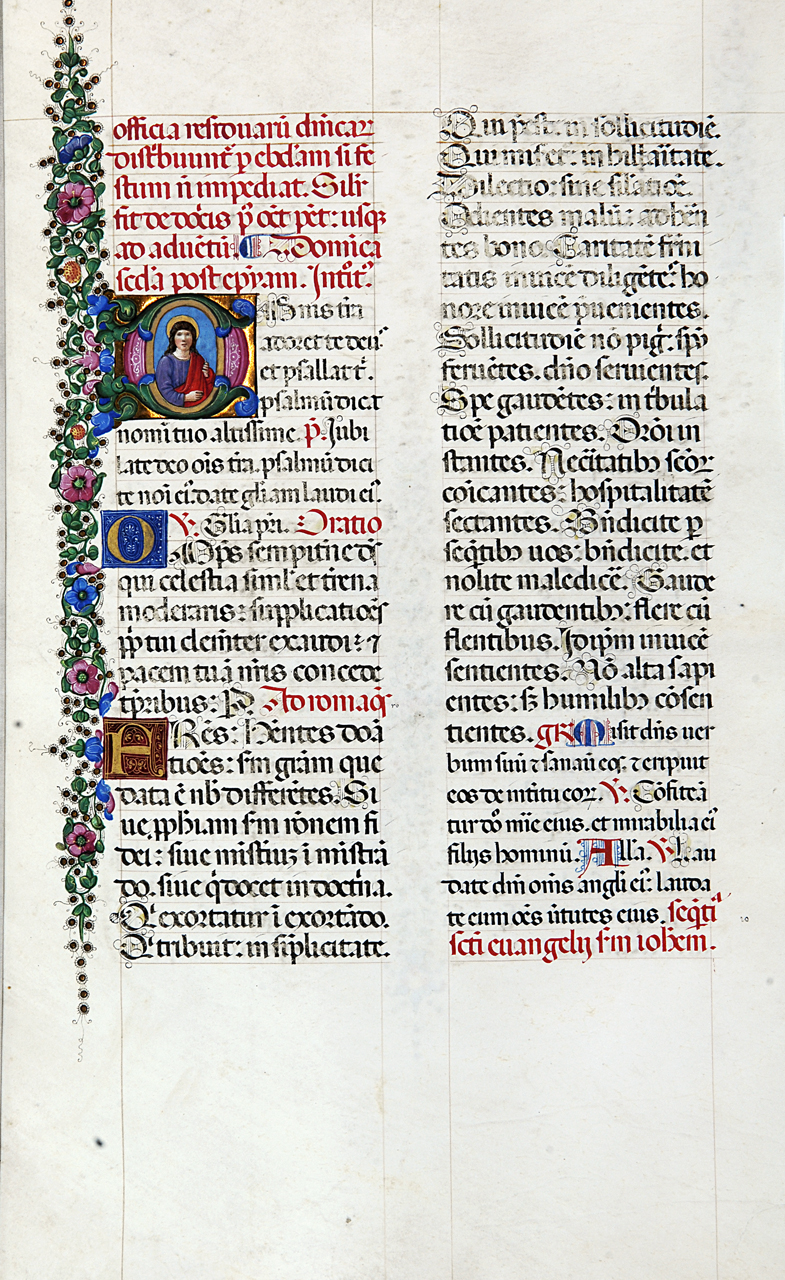 officia residuarũ dñicar̃
distˀbuunt̃ p ebdam̃ si fe
stum ñ impediat. Silr̃
fit de dõcis p̃ oct̃ pẽt: usq3
ad aduẽtũ. Domĩca
scďa post epyam̃. Intˀoit9.
OMnis tr̃a
adoret te deus
et psallat t.
psalmũ dicat
nomĩ tuo altissime. p̃. Jubi
late deo oĩs tr̃a. psalmũ dici
te nõi eiˀ. date glĩam laudi eiˀ.
V̷. Glia pr̃i. Oratio
OMp̃s sempit̃ne ds̃
qui celestia siml̃ et tr̃ena
moderaris: supplicatioẽs
ppl̃i tui clemẽter exaudi: ⁊
pacem tuã nr̃is concede
tp̃ribus: P̃ Ad romaños
FRes: Hẽntes doã
tioẽs: sm̃ grãm que
data ẽ nb̃ differẽtes. Si
ue, pphĩam sm̃ rõnem fi
dei: siue mĩsteriũ ĩ mĩstrã
do. siue q̇ docet in doctˀna.
Qˀ exortatur ĩ exortãdo.
Qˀ tribuit: in siplĩcitate.
Qui p̃est: in sollicitudiẽ.
Qui miseretˀ: in hilˀaitate.
Dilectio: sine silˀatioẽ.
Odientes malũ: adhẽn
tes bono. Caritatẽ frñi
tatis inuicẽ diligẽtes: ho
nore inuicẽ p̃uenientes.
Sollicitudiẽ nõ pigˀ: spũ
feruẽtes. dño seruientes.
Spe gaudẽtes: in tˀbula
tioẽ patientes. Orõi in
stantes. Necc̃itatib3 scõr
cõicantes: hospitalitatẽ
sectantes. Bñdicite p
seqˀtib3 uos: bñdicite. et
nolite maledicẽ. Gaude
re cũ gaudentib3: flere cũ
flentibus. Idip̃m inuicẽ
sentientes. Nõ alta sapi
entes: s3 humilib3 cõsen
tientes. gR Misit dñs uer
bum suũ ⁊ sanauĩ eos: ⁊ eripuit
eos de int̃itu eor. V̷. Cõfiteã
tur dõ mĩe eius. et mirabilia eiˀ
filijs hominũ. All̃a. V̷. Lau
date dñm om̃s angl̃i eiˀ: lauda
te eum oẽs ũtutes eius. seqˀtia
scti̇ euangelij sm̃ iohẽm.